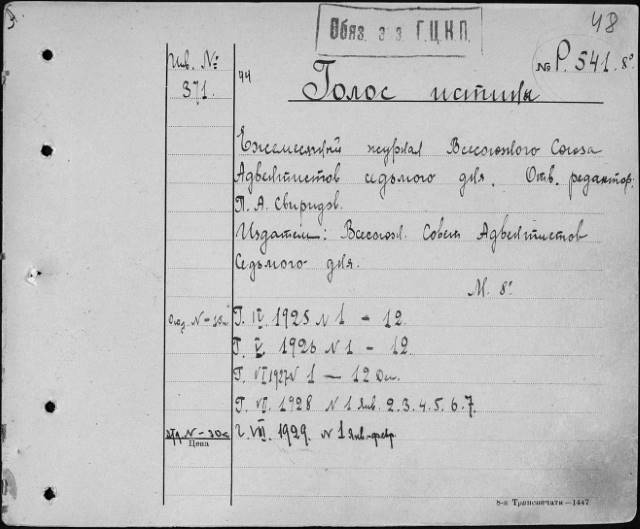 Обяз. э-з. Г.Ц.К.П.
48
Инв. №
371.
44
№ Р. 541. 8°
Голос истины
Ежемесячный журнал Всесоюзного Союза
Адвентистов седьмого дня. Отв. редактор:
П. А. Свиридов.
Издатель: Всесоюзн. Совет Адвентистов
Седьмого дня.
М. 8°
Г. IV. 1925 № 1 - 12.
Г. V. 1926 № 1 - 12
Г. VI 1927 № 1 — 12 Дек.
Г. VII. 1928 № 1 Янв. 2. 3. 4. 5. 6. 7.
отд. № - 30к
Г. VIII. 1929. № 1 Янв-февр.
Цена
8-я Транспечати—1447